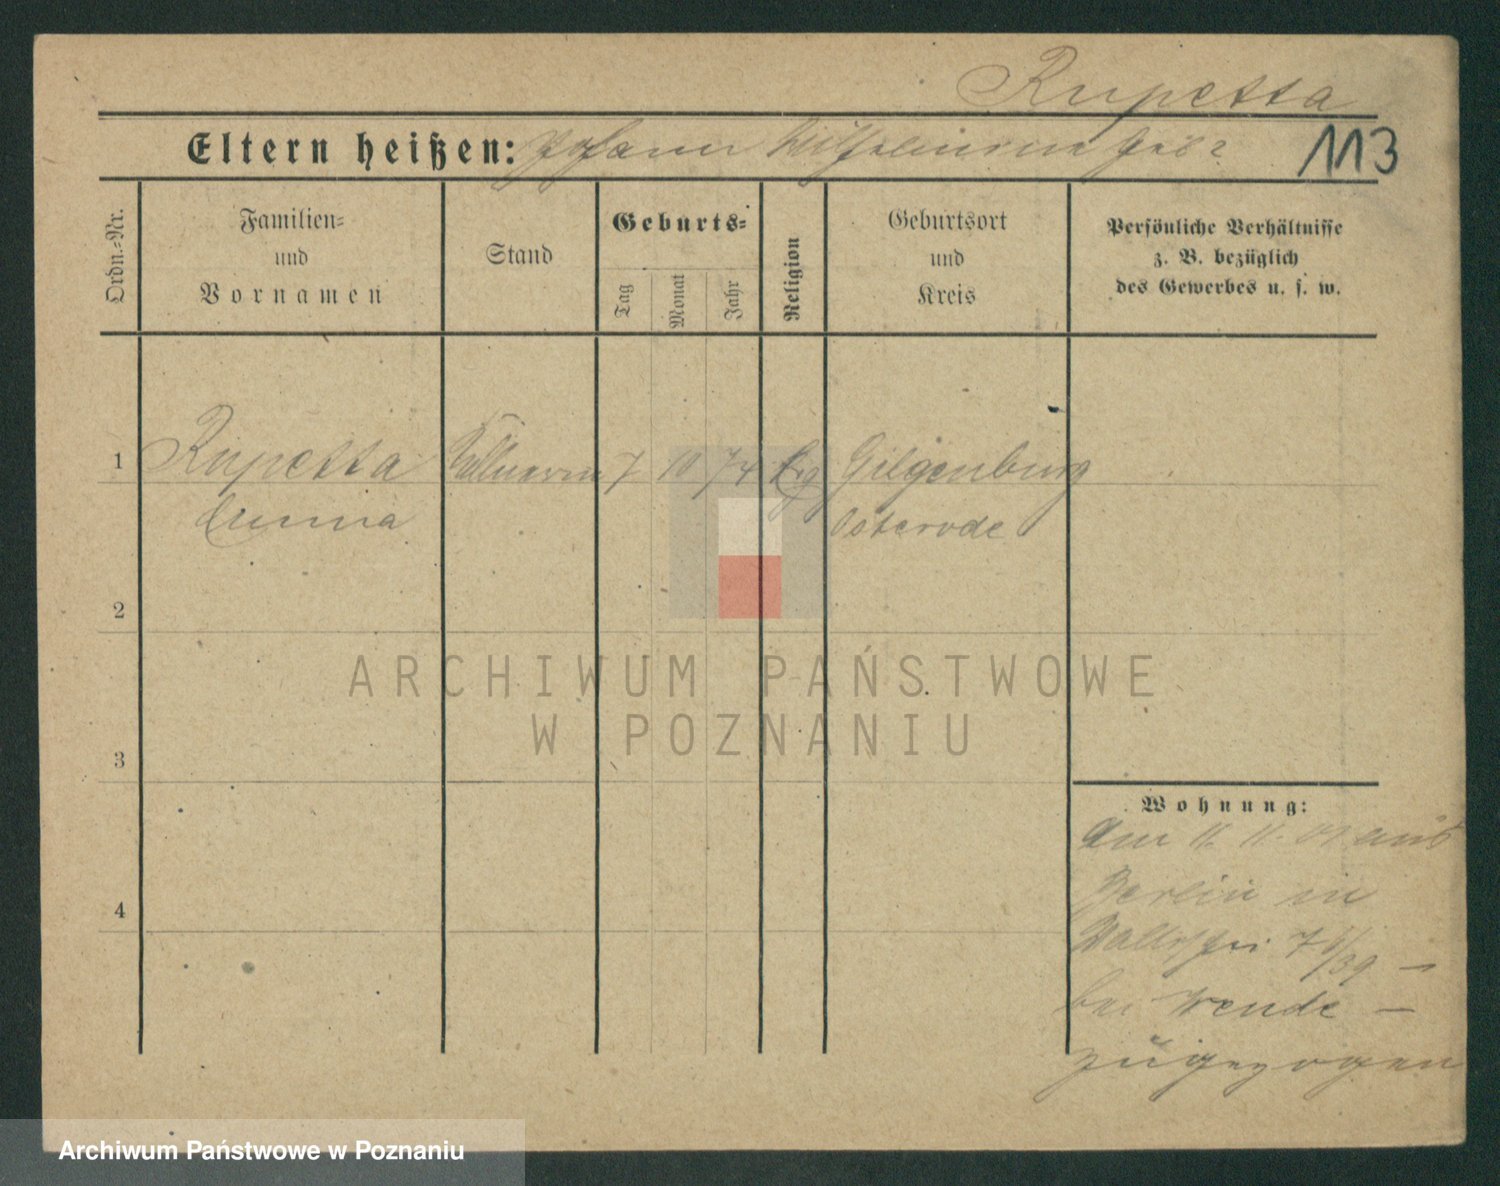 Rupetta
Eltern heißen: Johann Wilhelmine geb?
113
Ordn.-Nr.
Familien-
und
Vornamen
Stand
Geburts-
Tag
Monat
Jahr
Religion
Geburtsort
und
Kreis
Persönliche Verhältnisse
z. B. bezüglich
des Gewerbes u. s. w.
1
Rupetta
Kellnerin
7
10
74
Evg
Gilgenburg
Anna
Osterode
2
ARCHIWUM PAŃSTWOWE
W POZNANIU
3
Wohnung:
Am 11. 11. aus
Berlin in
Wallischei
4
bei Wende –
zugezogen
Archiwum Państwowe w Poznaniu